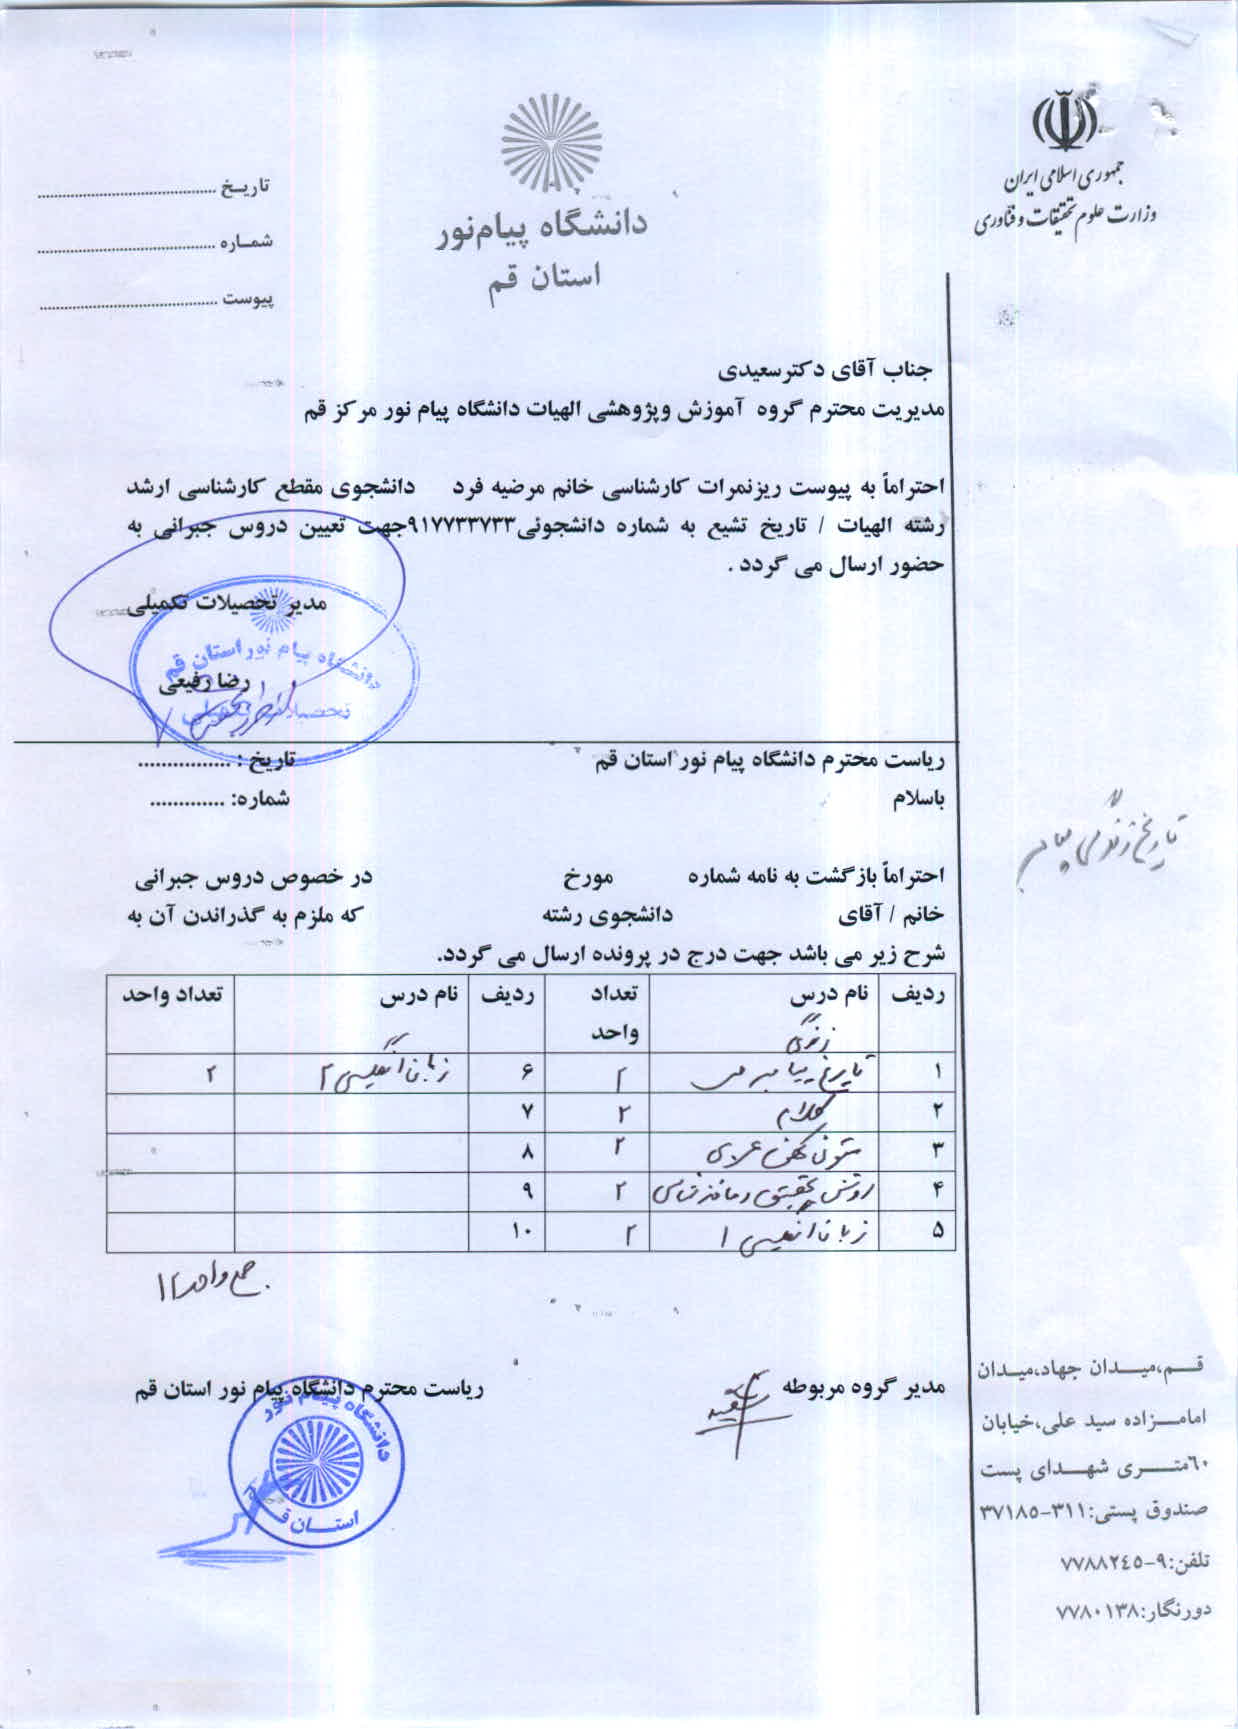 جمهوری اسلامی ایران
وزارت علوم تحقیقات و فناوری
دانشگاه پیام‌نور
استان قم
تاریـخ ..........................................
شمـاره ..........................................
پیوست ..........................................
جناب آقای دکترسعیدی
مدیریت محترم گروه آموزش وپژوهشی الهیات دانشگاه پیام نور مرکز قم
احتراماً به پیوست ریزنمرات کارشناسی خانم مرضیه فرد دانشجوی مقطع کارشناسی ارشد
رشته الهیات / تاریخ تشیع به شماره دانشجوئی۹۱۷۷۳۳۷۳۳جهت تعیین دروس جبرانی به
حضور ارسال می گردد .
مدیر تحصیلات تکمیلی
دانشگاه پیام نور استان قم
رضا رفیعی
تحصیلات تکمیلی
ریاست محترم دانشگاه پیام نور استان قم
تاریخ : ................
باسلام
شماره: .............
تاریخ زندگی پیامبر
احتراماً بازگشت به نامه شماره مورخ در خصوص دروس جبرانی
خانم / آقای دانشجوی رشته که ملزم به گذراندن آن به
شرح زیر می باشد جهت درج در پرونده ارسال می گردد.
ردیف نام درس تعداد واحد ردیف نام درس تعداد واحد
زندگی
۱ تاریخ پیامبر ۲ ۶ زبان انگلیسی ۲ ۲
۲ کلام ۲ ۷
۳ متون کهن عربی ۲ ۸
۴ روش تحقیق و ماخذشناسی ۲ ۹
۵ زبان انگلیسی ۱ ۲ ۱۰
جمع واحد ۱۲
مدیر گروه مربوطه
ریاست محترم دانشگاه پیام نور استان قم
دانشگاه پیام نور
استان قم
قـم،میـدان جهاد،میـدان
امامـزاده سید علی،خیابان
۶۰متـری شهـدای پست
صندوق پستی:۳۱۱-۳۷۱۸۵
تلفن:۹-۷۷۸۸۲۴۵
دورنگار:۷۷۸۰۱۳۸